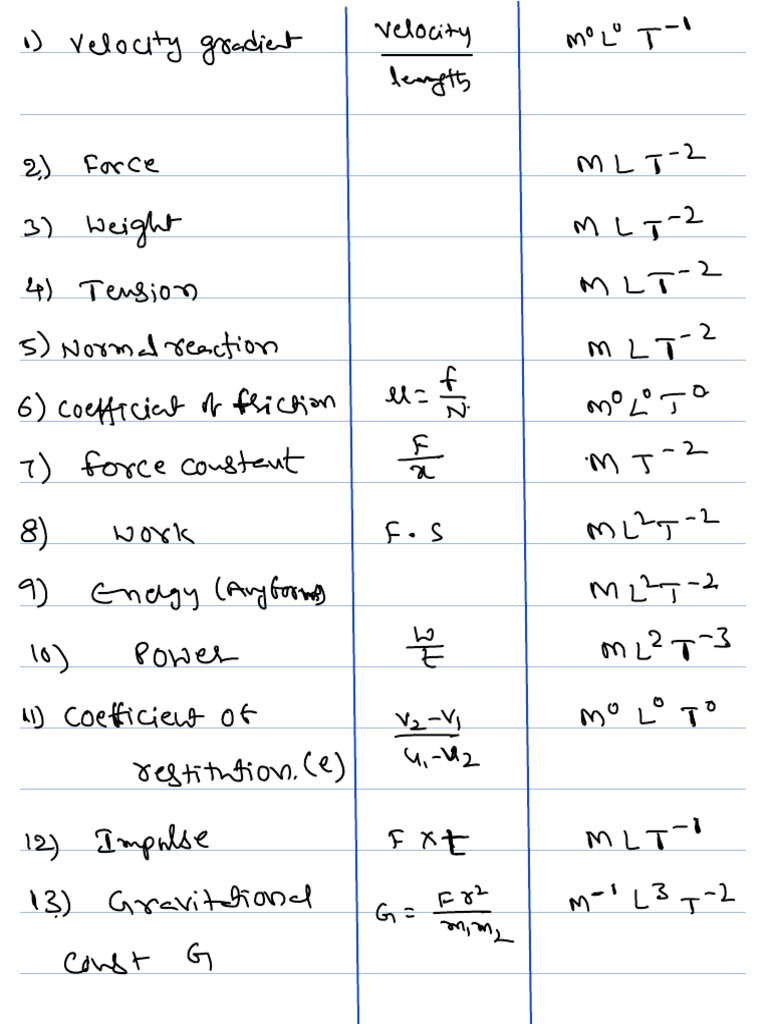 1) Velocity gradient velocity/length M⁰L⁰ T⁻¹
2) Force M L T⁻²
3) Weight M L T⁻²
4) Tension M L T⁻²
5) Normal reaction M L T⁻²
6) Coefficient of friction μ = f/N. M⁰L⁰T⁰
7) force constant F/x M T⁻²
8) Work F . S M L² T⁻²
9) Energy (Any form) M L² T⁻²
10) Power W/t M L² T⁻³
11) Coefficient of V₂-V₁/u₁-u₂ M⁰ L⁰ T⁰
restitution. (e)
12) Impulse F x t M L T⁻¹
13) Gravitational G = F r²/m₁m₂ M⁻¹ L³ T⁻²
Const G